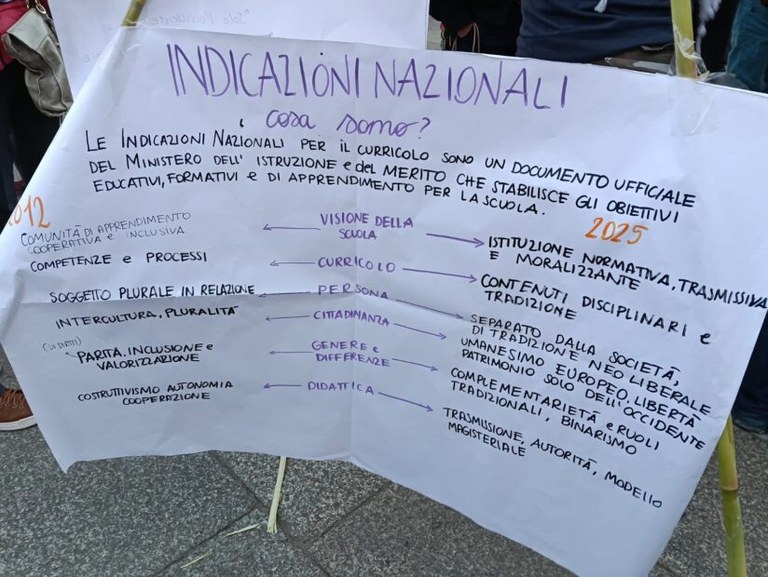 INDICAZIONI NAZIONALI
cosa sono?
LE INDICAZIONI NAZIONALI PER IL CURRICOLO SONO UN DOCUMENTO UFFICIALE
DEL MINISTERO DELL'ISTRUZIONE e del MERITO CHE STABILISCE GLI OBIETTIVI
EDUCATIVI, FORMATIVI e DI APPRENDIMENTO PER LA SCUOLA.
012
2025
COMUNITÀ DI APPRENDIMENTO
COOPERATIVA e INCLUSIVA
VISIONE DELLA
SCUOLA
ISTITUZIONE NORMATIVA, TRASMISSIVA
E MORALIZZANTE
COMPETENZE e PROCESSI
CURRICOLO
CONTENUTI DISCIPLINARI e
TRADIZIONE
SOGGETTO PLURALE IN RELAZIONE
PERSONA
SEPARATO DALLA SOCIETÀ,
DI TRADIZIONE NEO LIBERALE
INTERCULTURA, PLURALITÀ
CITTADINANZA
UMANESIMO EUROPEO, LIBERTÀ
PATRIMONIO SOLO DELL'OCCIDENTE
PARITÀ, INCLUSIONE e
VALORIZZAZIONE
GENERE e
DIFFERENZE
COMPLEMENTARIETÀ e RUOLI
TRADIZIONALI, BINARISMO
COSTRUTTIVISMO AUTONOMIA
COOPERAZIONE
DIDATTICA
TRASMISSIONE, AUTORITÀ, MODELLO
MAGISTERIALE